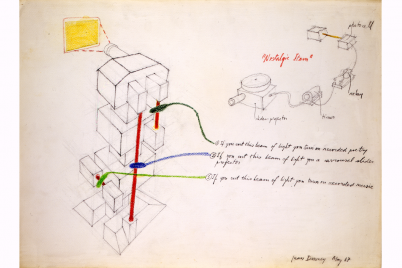 photocell
"Nostalgic Item"
relay
slide projector
① If you cut this beam of light you turn on recorded poetry
② If you cut this beam of light you a carrousel slides
projector
③ If you cut this beam of light you turn on recorded music
Juan Downey May 67